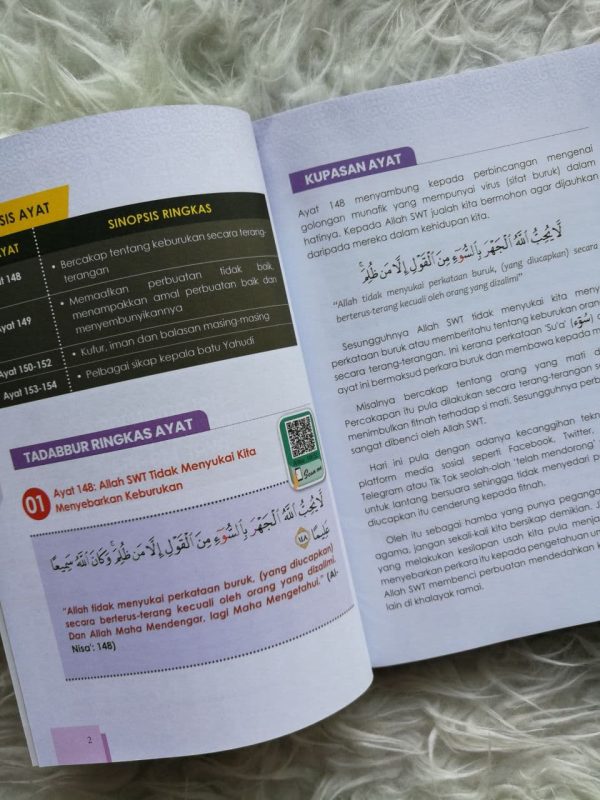 SIS AYAT
AYAT
SINOPSIS RINGKAS
148
• Bercakap tentang keburukan secara terang-
terangan
Ayat 149
• Memaafkan perbuatan tidak baik,
menampakkan amal perbuatan baik dan
menyembunyikannya
Ayat 150-152
• Kufur, iman dan balasan masing-masing
Ayat 153-154
• Pelbagai sikap kepala batu Yahudi
TADABBUR RINGKAS AYAT
Scan me
01
Ayat 148: Allah SWT Tidak Menyukai Kita
Menyebarkan Keburukan
لَّا يُحِبُّ ٱللَّهُ ٱلْجَهْرَ بِٱلسُّوٓءِ مِنَ ٱلْقَوْلِ إِلَّا مَن ظُلِمَ ۚ وَكَانَ ٱللَّهُ سَمِيعًا
عَلِيمًا ١٤٨
"Allah tidak menyukai perkataan buruk, (yang diucapkan)
secara berterus-terang kecuali oleh orang yang dizalimi.
Dan Allah Maha Mendengar, lagi Maha Mengetahui." (Al-
Nisa': 148)
2
KUPASAN AYAT
Ayat 148 menyambung kepada perbincangan mengenai
golongan munafik yang mempunyai virus (sifat buruk) dalam
hatinya. Kepada Allah SWT jualah kita bermohon agar dijauhkan
daripada mereka dalam kehidupan kita.
لَّا يُحِبُّ ٱللَّهُ ٱلْجَهْرَ بِٱلسُّوٓءِ مِنَ ٱلْقَوْلِ إِلَّا مَن ظُلِمَ ۚ
"Allah tidak menyukai perkataan buruk, (yang diucapkan) secara
berterus-terang kecuali oleh orang yang dizalimi"
Sesungguhnya Allah SWT tidak menyukai kita
perkataan buruk atau memberitahu tentang keburukan
secara terang-terangan. Ini kerana perkataan Su'a' (سُوٓء)
ayat ini bermaksud perkara buruk dan membawa kepada
Misalnya bercakap tentang orang yang mati
Percakapan itu pula dilakukan secara terang-terangan
menimbulkan fitnah terhadap si mati. Sesungguhnya
sangat dibenci oleh Allah SWT.
Hari ini pula dengan adanya kecanggihan
platform media sosial seperti Facebook, Twitter,
Telegram atau Tik Tok seolah-olah 'telah mendorong'
untuk lantang bersuara sehingga tidak menyedari
diucapkan itu cenderung kepada fitnah.
Oleh itu sebagai hamba yang punya
agama, jangan sekali-kali kita bersikap demikian.
yang melakukan kesilapan usah kita pula
menyebarkan perkara itu kepada pengetahuan
Allah SWT membenci perbuatan mendedahkan
lain di khalayak ramai.